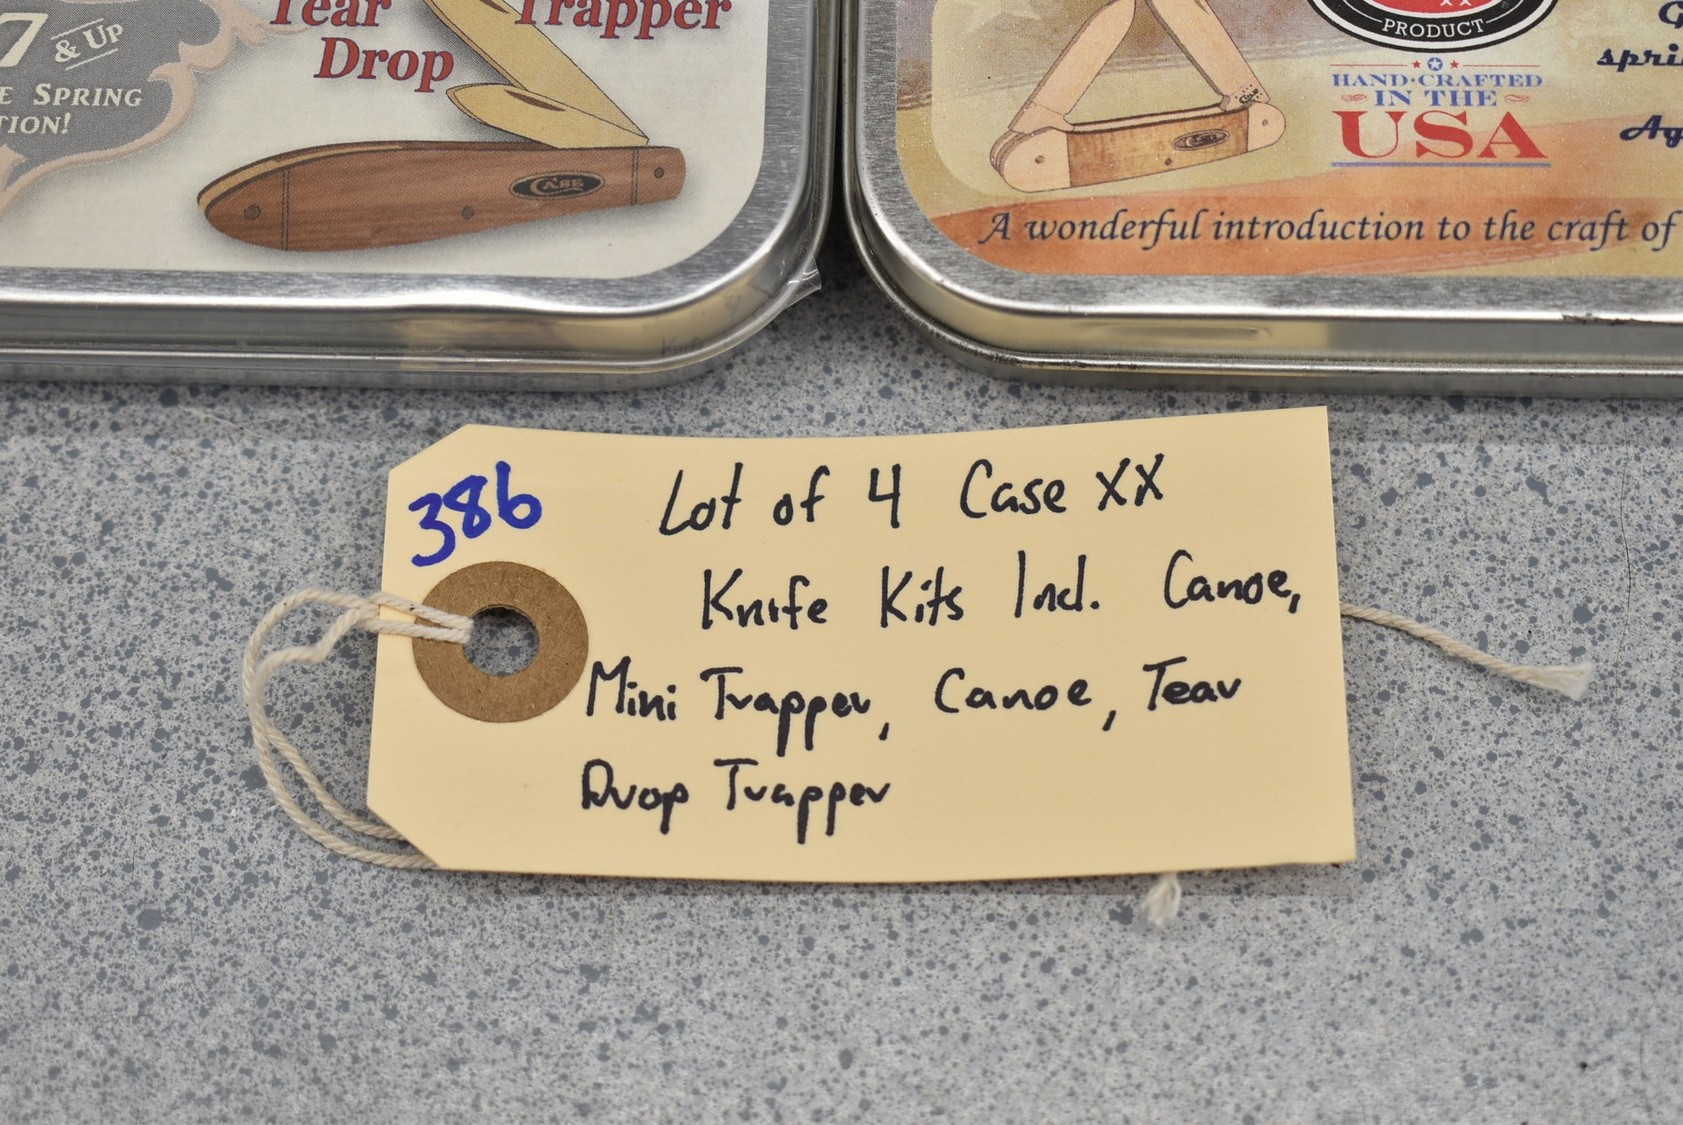 Tear
Drop
Trapper
7 & UP
E SPRING
TION!
CASE
PRODUCT
HAND·CRAFTED
IN THE
USA
A wonderful introduction to the craft of
386
Lot of 4 Case XX
Knife Kits Incl. Canoe,
Mini Trapper, Canoe, Tear
Drop Trapper